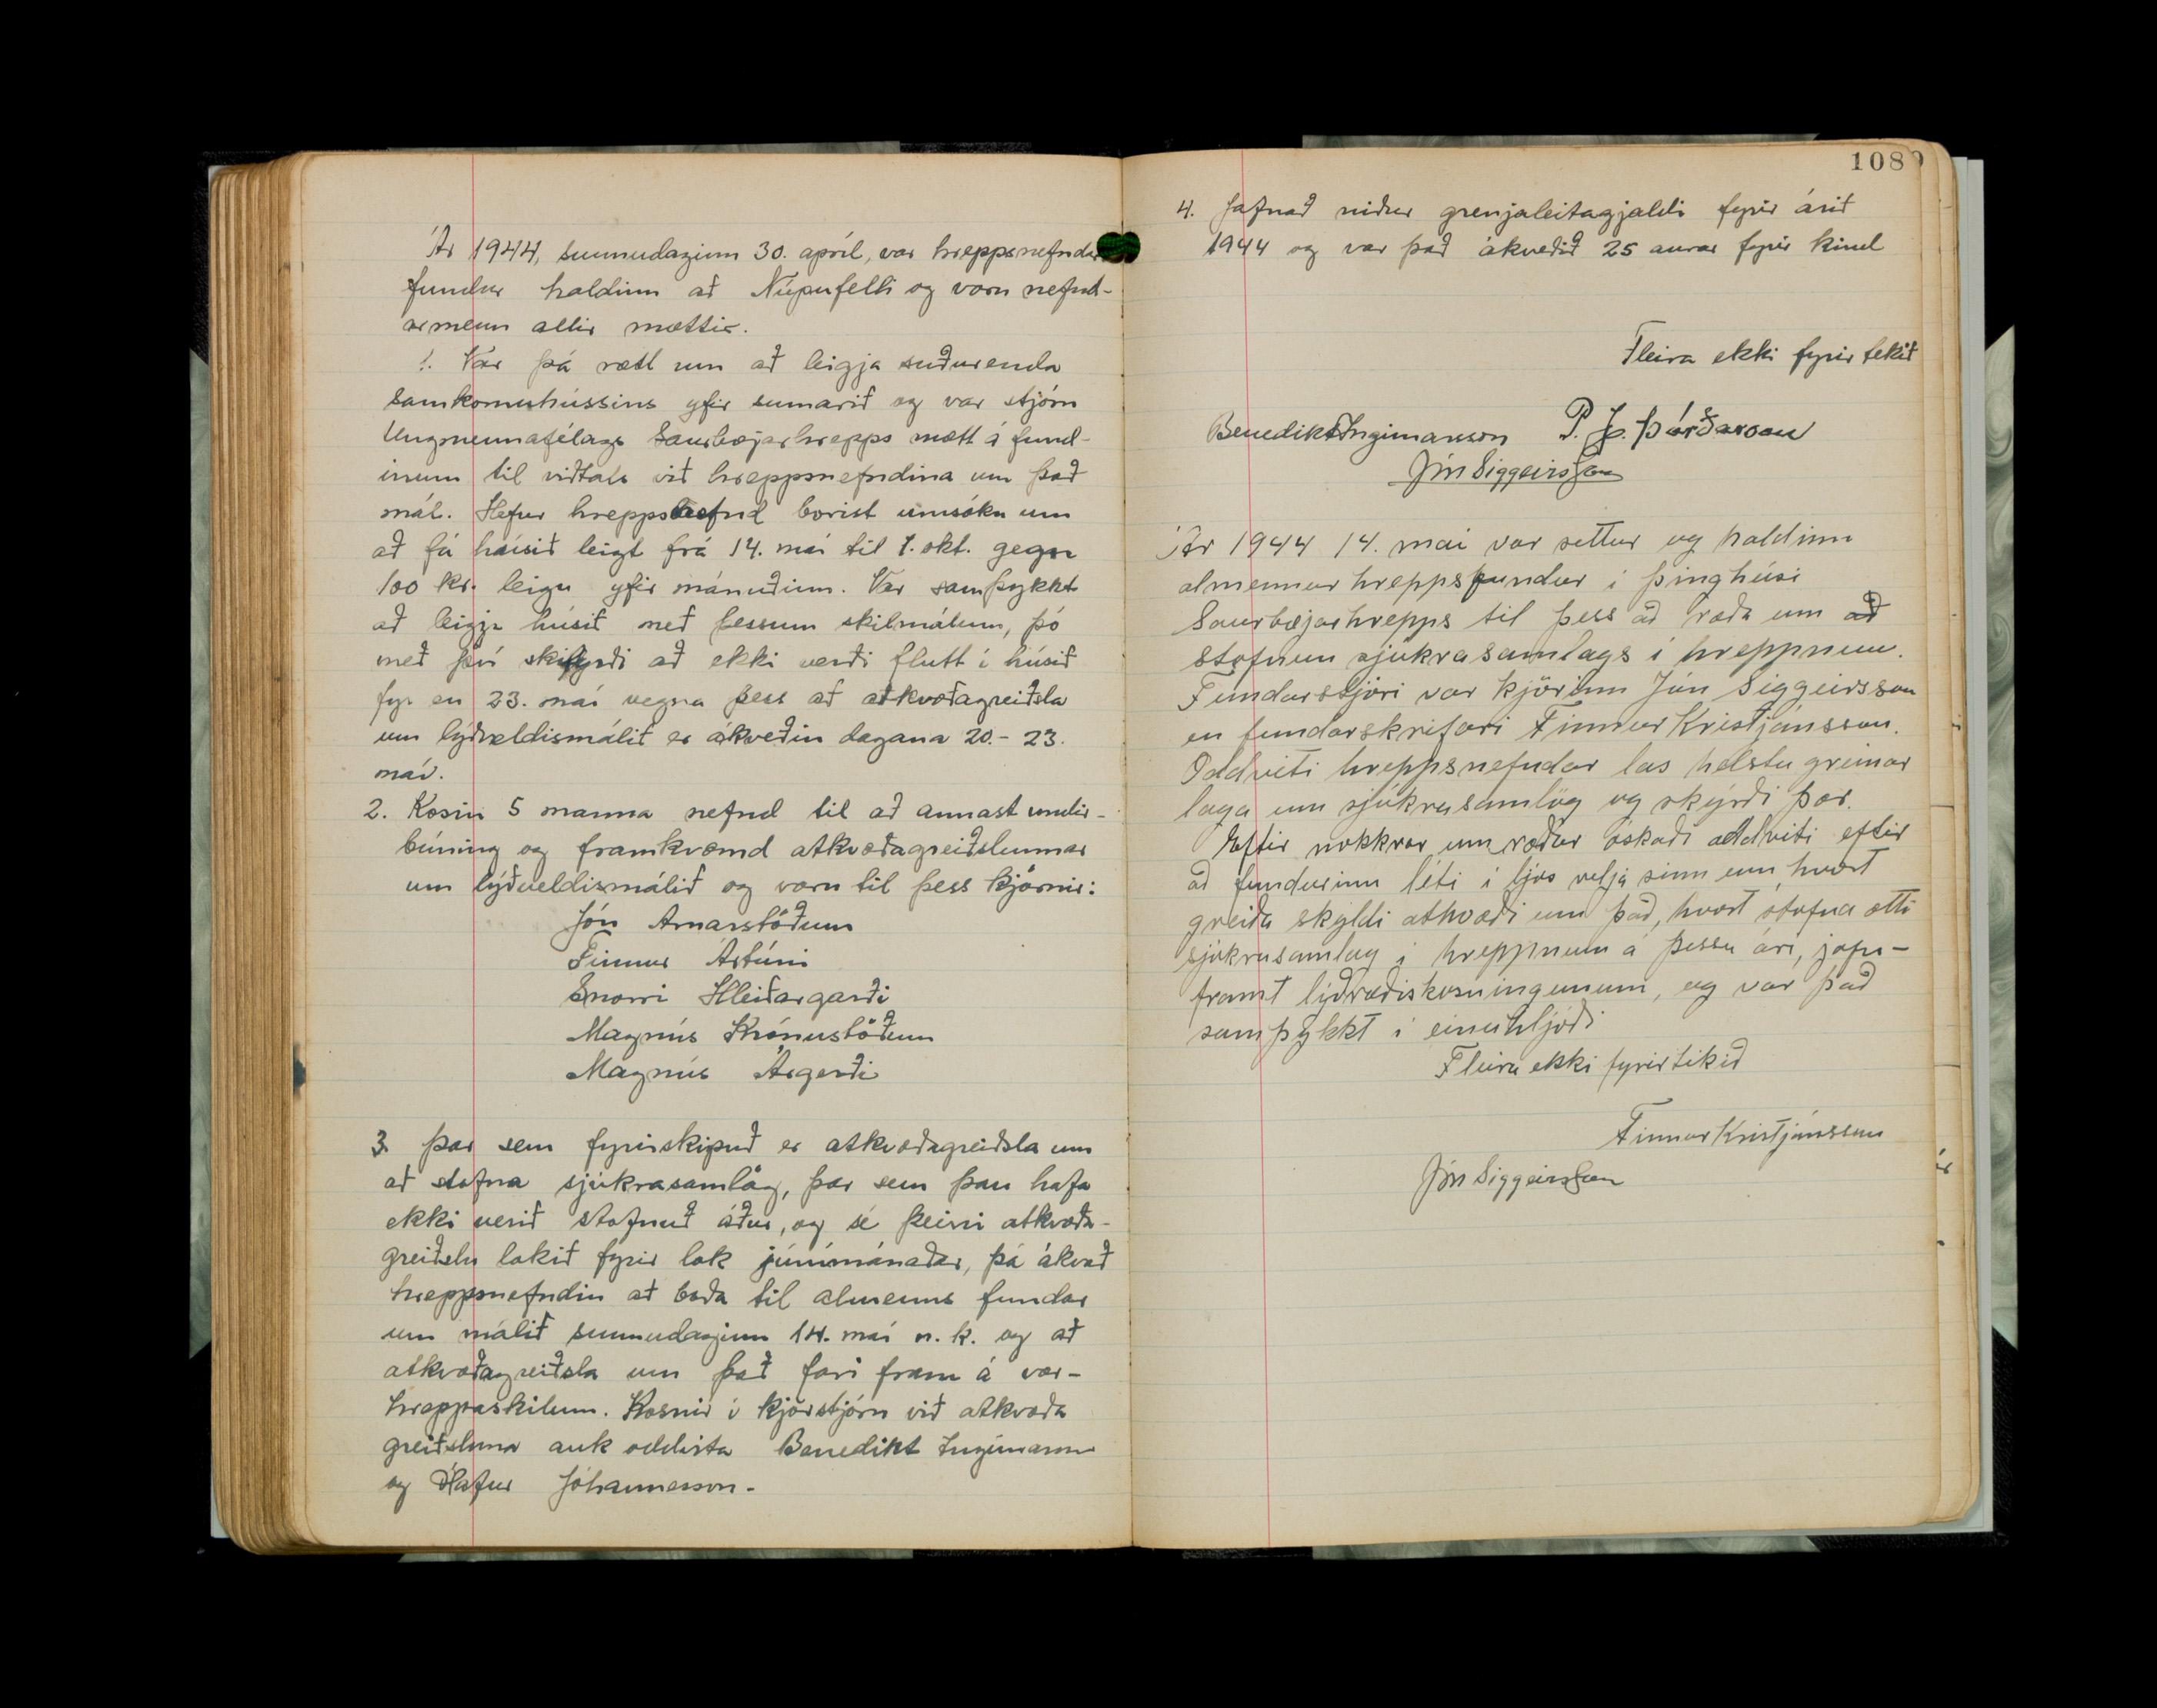 Ár 1944, sunnudaginn 30. apríl, var hreppsnefndar
fundur haldinn að Núpufelli og voru nefnd-
armenn allir mættir.
1. Var þá rætt um að leigja suðurenda
Samkomuhússins yfir sumarið og var stjórn
Ungmennafélags Saurbæjarhrepps mætt á fund-
inum til viðtals við hreppsnefndina um það
mál. Hefur hreppsnefnd borist umsókn um
að fá húsið leigt frá 14. maí til 1. okt. gegn
100 kr. leigu yfir mánuðinn. Var samþykkt
að leigja húsið með þessum skilmálum, þó
með því skilyrði að ekki verði flutt í húsið
fyr en 23. maí vegna þess að atkvæðagreiðsla
um lýðveldismálið er ákveðin dagana 20.- 23.
maí.
2. Kosin 5 manna nefnd til að annast undir-
búning og framkvæmd atkvæðagreiðslunnar
um lýðveldismálið og voru til þess kjörnir:
Jón Arnarstöðum
Finnur Ártúni
Snorri Hleiðargarði
Magnús Krónustöðum
Magnús Ásgerði
3. Þar sem fyrirskipuð er atkvæðagreiðsla um
að stofna sjúkrasamlög, þar sem þau hafa
ekki verið stofnuð áður, og sé þeirri atkvæða-
greiðslu lokið fyrir lok júnímánaðar, þá ákvað
hreppsnefndin að boða til almenns fundar
um málið sunnudaginn 14. maí n.k. og að
atkvæðagreiðsla um það fari fram á vor-
hreppaskilum. Kosnir í kjörstjórn við atkvæða
greiðsluna auk oddvita Benedikt Ingimarsson
og Ólafur Jóhannesson.
108
4. Jafnað niður grenjaleitagjaldi fyrir árið
1944 og var það ákveðið 25 aurar fyrir kind
Fleira ekki fyrir tekið
Benedikt Ingimarsson P. J. Þórðarson
Jón Siggeirsson
Ár 1944 14. mai var settur og haldinn
almennur hreppsfundur í þinghúsi
Saurbæjarhrepps til þess að ræða um að
stofnun sjúkrasamlags í hreppnum.
Fundarstjóri var kjörinn Jón Siggeirsson
en fundarskrifari Finnur Kristjánsson.
Oddviti hreppsnefndar las helstu greinar
laga um sjúkrasamlög og skýrði þær.
Eftir nokkrar umræður óskaði oddviti eftir
að fundurinn léti í ljós vilja sinn um hvort
greiða skyldi atkvæði um það, hvort stofna ætti
sjúkrasamlag í hreppnum á þessu ári, jafn-
framt lýðræðiskosningunum, og var það
samþykkt í einuhljóði
Fleira ekki fyrirtekið
Finnur Kristjánsson
Jón Siggeirsson